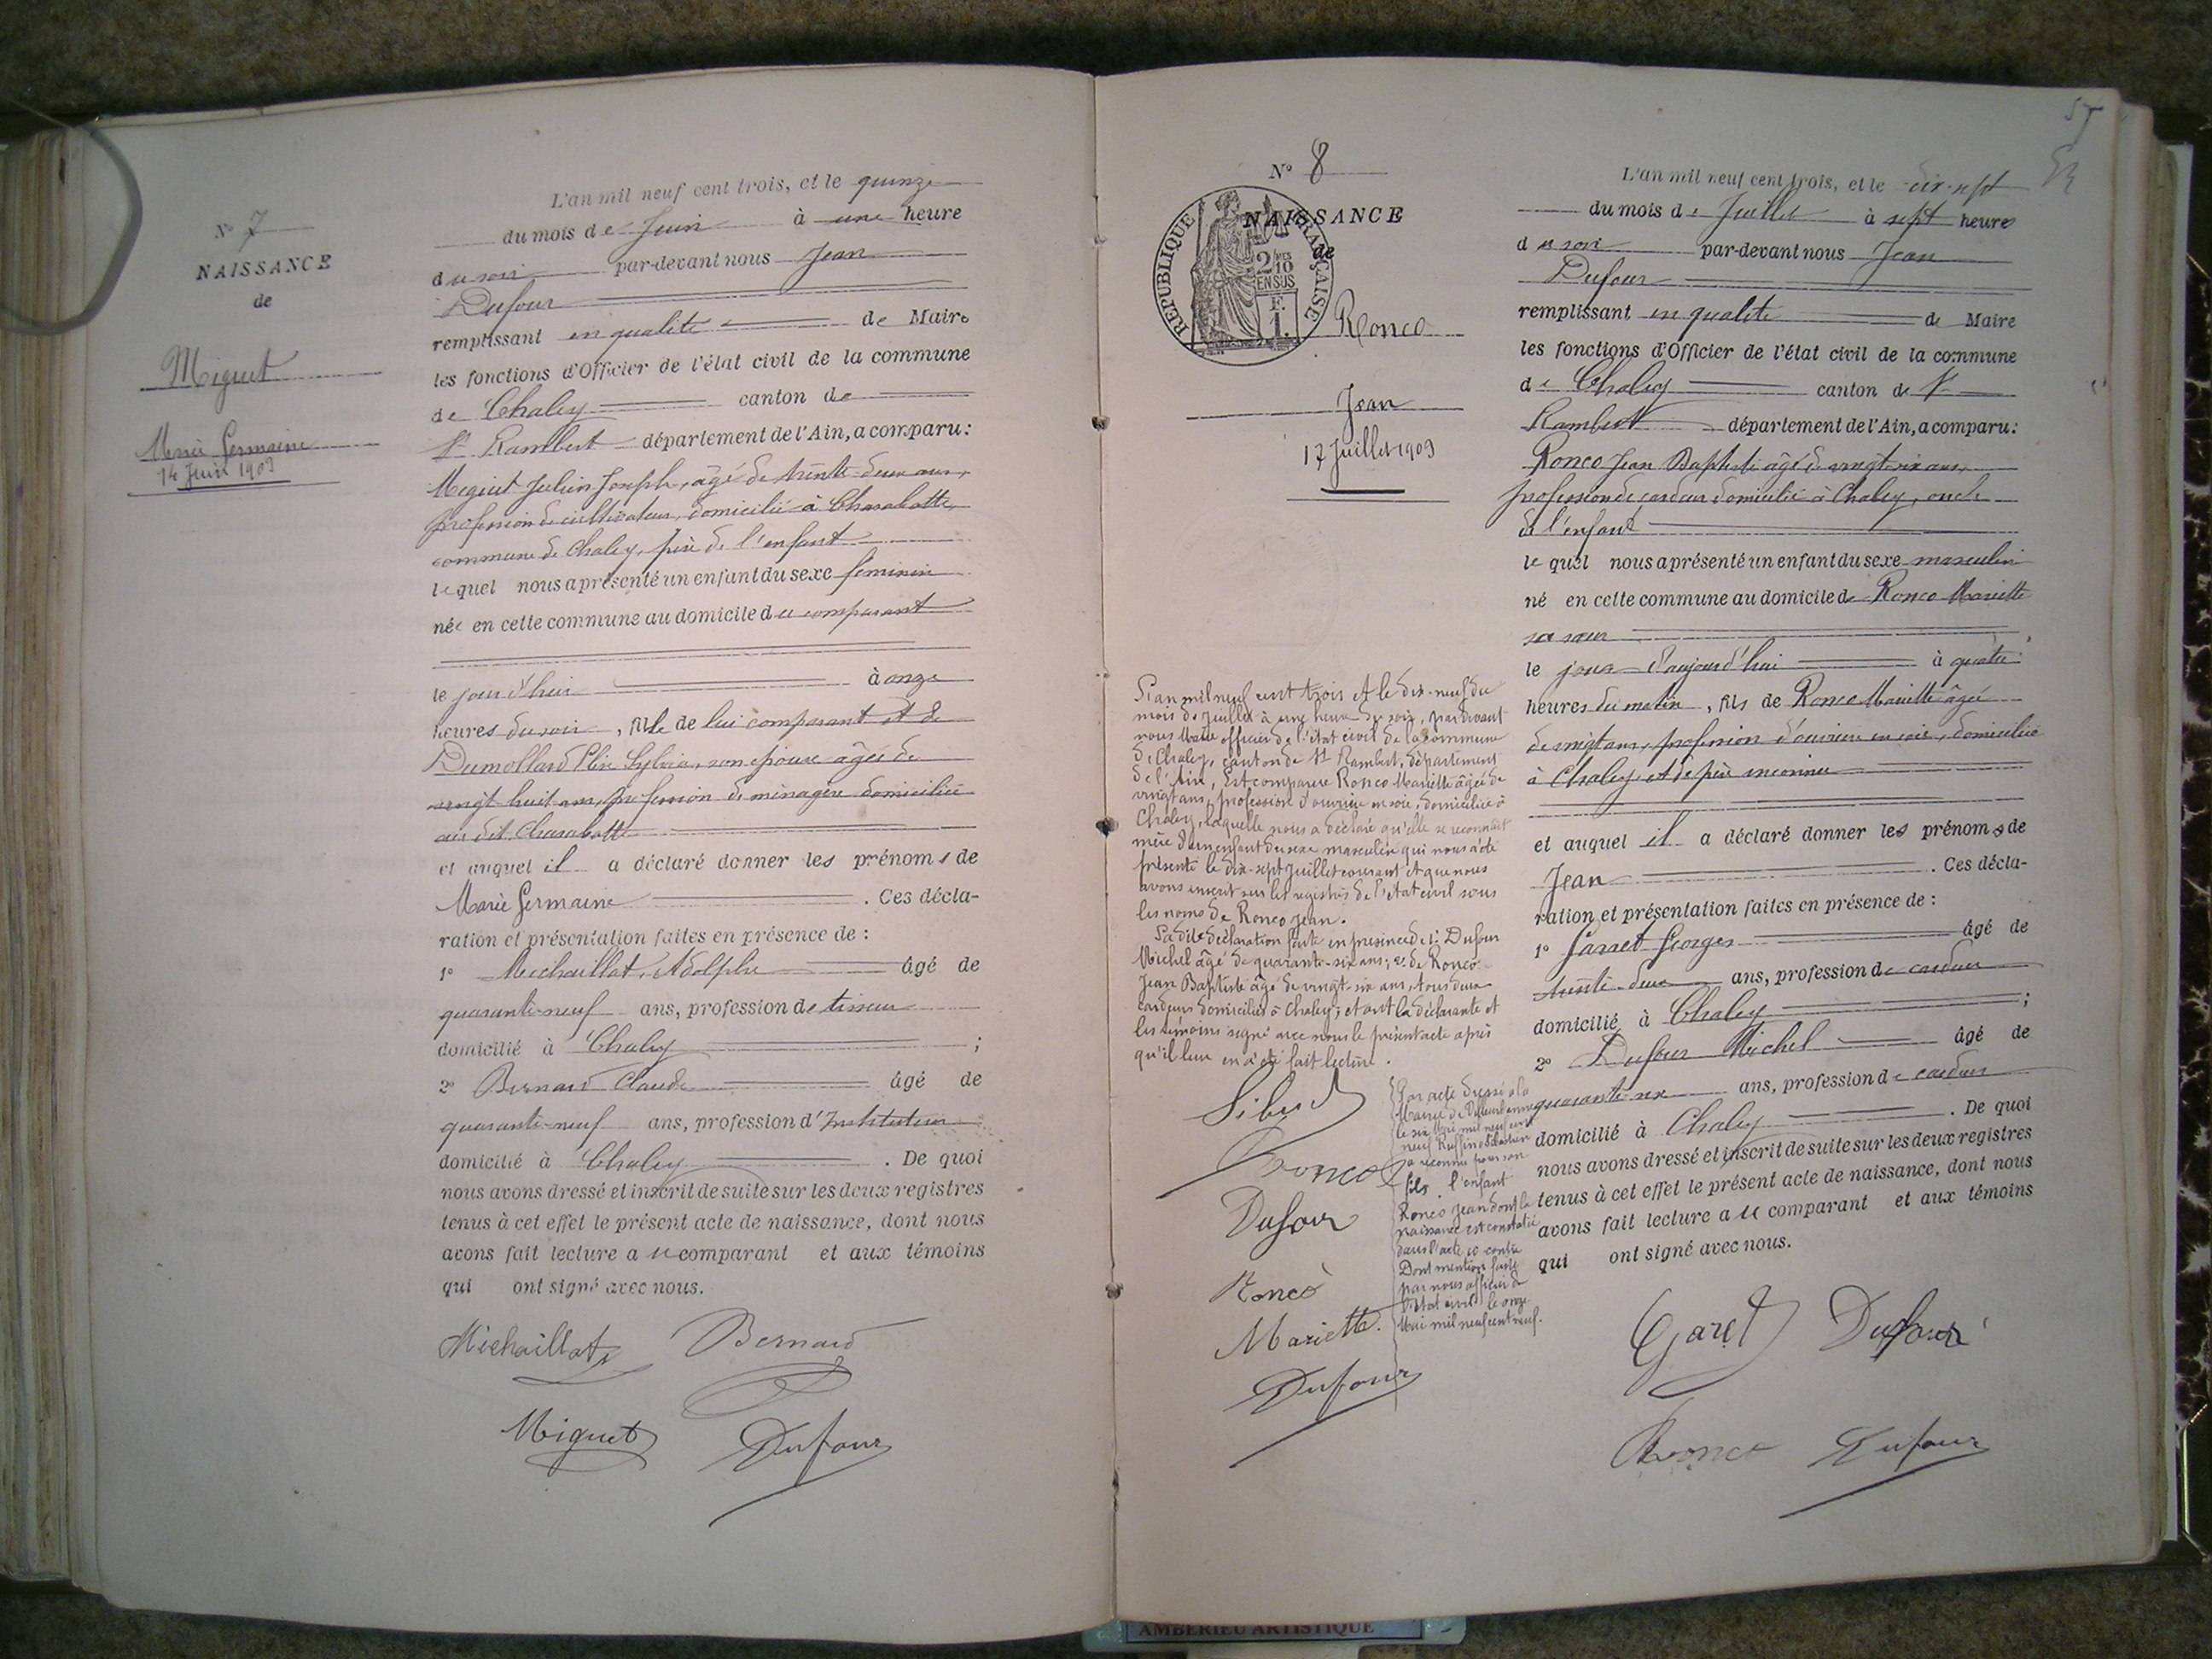 N° 7
NAISSANCE
de
Miguet
Marie Germaine
14 Juin 1903
L'an mil neuf cent trois, et le quinze
du mois de Juin à une heure
du soir par-devant nous Jean
Dufour
remplissant en qualité de Maire
les fonctions d'Officier de l'état civil de la commune
de Chaley canton de
St Rambert département de l'Ain, a comparu :
Miguet Julien Joseph, âgé de trente-deux ans,
profession de cultivateur, domicilié à Charabotte,
commune de Chaley, père de l'enfant
lequel nous a présenté un enfant du sexe féminin
née en cette commune au domicile du comparant
le jour d'hier à onze
heures du soir, fille de lui comparant et de
Dumollard Sylvia, son épouse âgée de
vingt huit ans, profession de ménagère domiciliée
au dit Charabotte
et auquel il a déclaré donner les prénoms de
Marie Germaine . Ces décla-
ration et présentation faites en présence de :
1° Michaillat, Adolphe âgé de
quarante-neuf ans, profession de tisseur
domicilié à Chaley ;
2° Bernard Claude âgé de
quarante-neuf ans, profession d'Instituteur
domicilié à Chaley . De quoi
nous avons dressé et inscrit de suite sur les deux registres
tenus à cet effet le présent acte de naissance, dont nous
avons fait lecture au comparant et aux témoins
qui ont signé avec nous.
Michaillat Bernard
Miguet Dufour
57
N° 8
NAISSANCE
de
REPUBLIQUE FRANÇAISE
2/10 EN SUS
F. 1.
Ronco
Jean
17 Juillet 1903
L'an mil neuf cent trois et le dix-neuf du
mois de Juillet à une heure du soir, par devant
nous Maire officier de l'état civil de la commune
de Chaley, canton de St Rambert, département
de l'Ain, Est comparue Ronco Mariette âgée de
vingt ans, profession d'ouvrière en soie, domiciliée à
Chaley, laquelle nous a déclaré qu'elle se reconnaît
mère d'un enfant du sexe masculin qui nous a été
présenté le dix-sept Juillet courant et que nous
avons inscrit sur les registres de l'état civil sous
les noms de Ronco Jean.
La dite déclaration faite en présence de 1° Dufour
Michel âgé de quarante-six ans, 2° de Ronco
Jean Baptiste âgé de vingt-six ans, tous deux
cardeurs domiciliés à Chaley; et ont la déclarante et
les témoins signé avec nous le présent acte après
qu'il leur en a été fait lecture.
Ronco
Dufour
Ronco
Mariette.
Dufour
Par acte dressé à la
Mairie de
le six Mai mil neuf cent
neuf Ruffino
a reconnu pour son
fils, l'enfant
Ronco Jean dont la
naissance est constatée
dans l'acte ci contre
Dont mention faite
par nous officier de
l'état civil le onze
Mai mil neuf cent neuf.
L'an mil neuf cent trois, et le dix-sept
du mois de Juillet à sept heures
du soir par-devant nous Jean
Dufour
remplissant en qualité de Maire
les fonctions d'Officier de l'état civil de la commune
de Chaley canton de St
Rambert département de l'Ain, a comparu :
Ronco Jean Baptiste âgé de vingt-six ans,
profession de cardeur domicilié à Chaley, oncle
de l'enfant
lequel nous a présenté un enfant du sexe masculin
né en cette commune au domicile de Ronco Mariette
sa sœur
le jour d'aujourd'hui à quatre
heures du matin, fils de Ronco Mariette âgée
de vingt ans, profession d'ouvrière en soie, domiciliée
à Chaley et de père inconnu
et auquel il a déclaré donner les prénoms de
Jean . Ces décla-
ration et présentation faites en présence de :
1° Garret Georges âgé de
trente-deux ans, profession de cardeur
domicilié à Chaley ;
2° Dufour Michel âgé de
quarante-six ans, profession de cardeur
domicilié à Chaley . De quoi
nous avons dressé et inscrit de suite sur les deux registres
tenus à cet effet le présent acte de naissance, dont nous
avons fait lecture au comparant et aux témoins
qui ont signé avec nous.
Garet Dufour
Ronco Dufour
AMBERIEU ARTISTIQUE